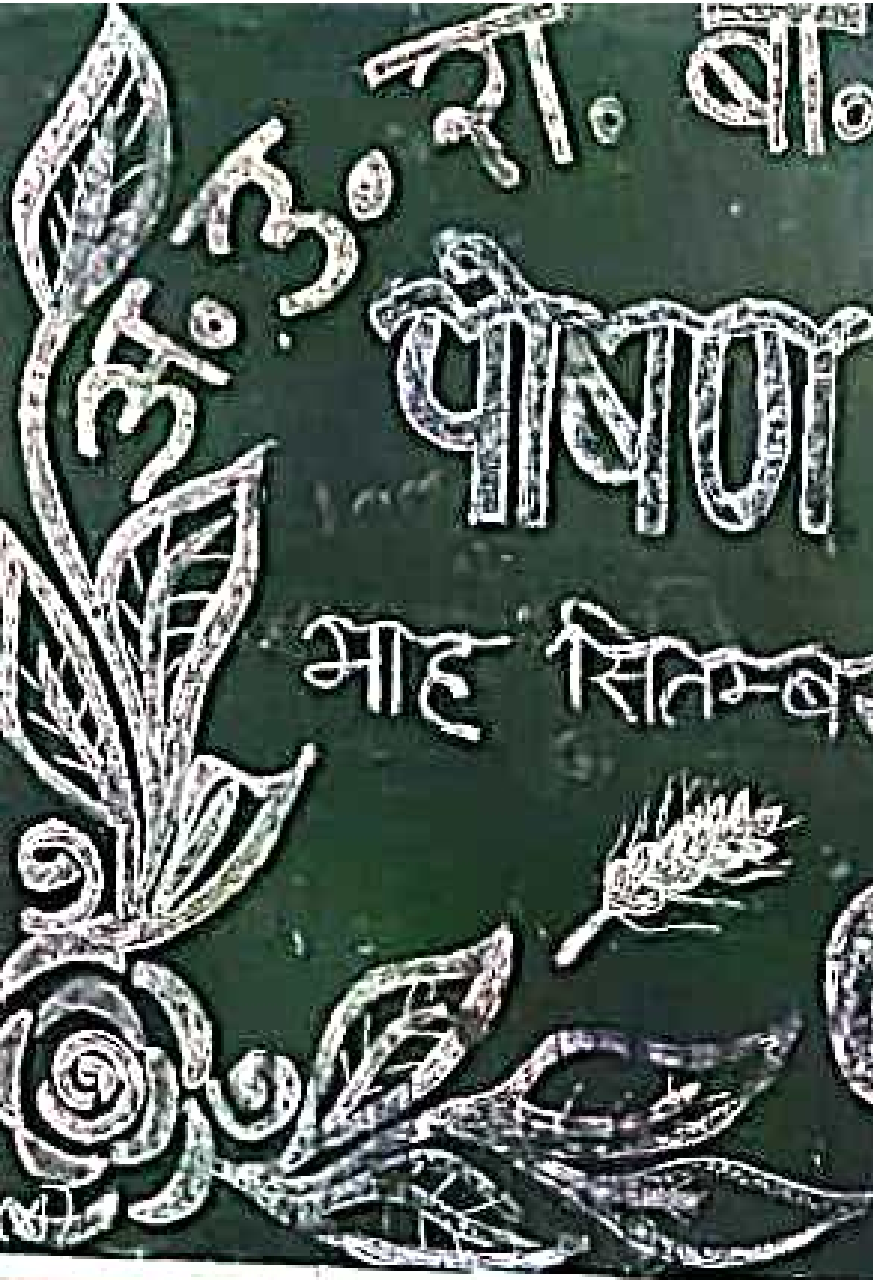 अ. उ. रा. बा.
पोषण
माह सितम्बर